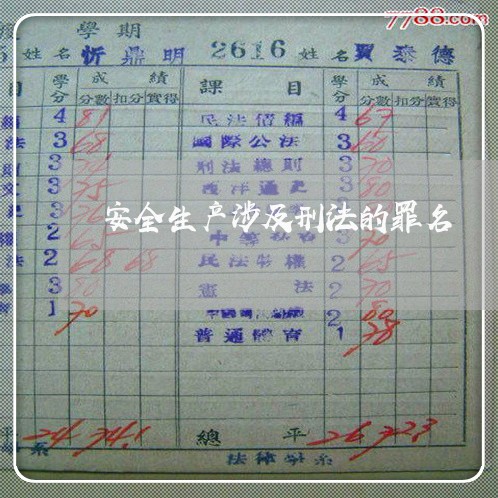 7788.com
學期
5 姓名 忻鼎明 2616 姓名 賈泰德
目 學分 成績 課目 學分 成績
分數 扣分 實得 分數 扣分 實得
4 81 民法債編 4 67
法 3 68 國際公法 3 60
3 刑法總則 3 70
3 75 西洋通史 3 80
3
安全生产涉及刑法的罪名
2 65 3 70
法 2 68 68 民法物權 2 65
3 80 憲法 2 70
育 1 70 2 80
普通體育 1 78
平 24 74.1 總平 26 72.3
系 法律學系